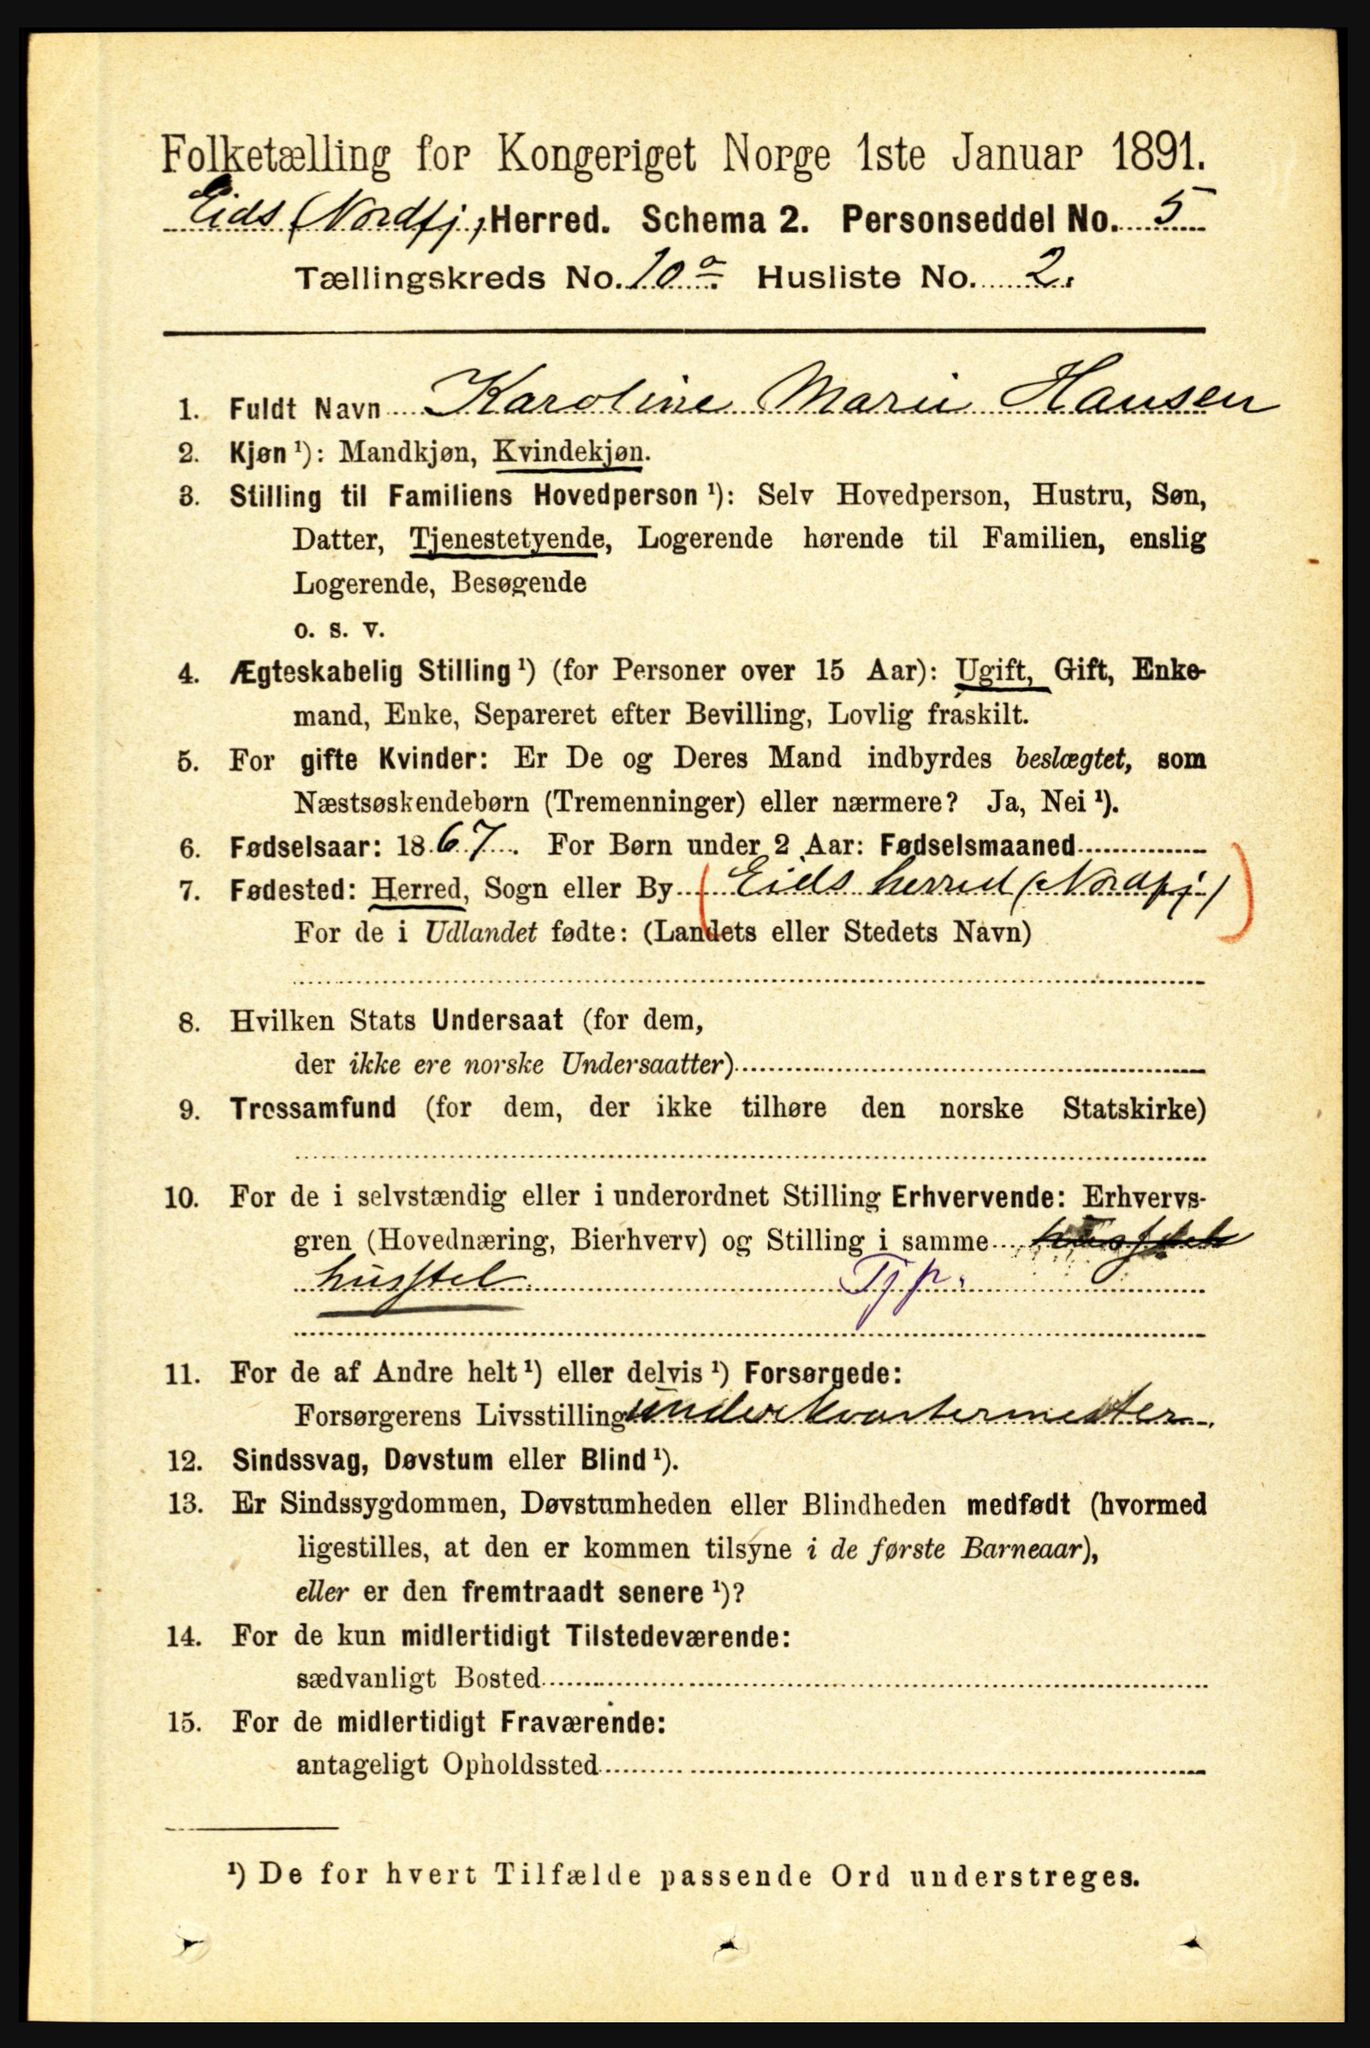 Folketælling for Kongeriget Norge 1ste Januar 1891.
Eids (Nordfj) Herred. Schema 2. Personseddel No. 5
Tællingskreds No. 10a. Husliste No. 2.
1. Fuldt Navn Karoline Marie Hansen
2. Kjøn ¹): Mandkjøn, Kvindekjøn.
3. Stilling til Familiens Hovedperson ¹): Selv Hovedperson, Hustru, Søn,
Datter, Tjenestetyende, Logerende hørende til Familien, enslig
Logerende, Besøgende
o. s. v.
4. Ægteskabelig Stilling ¹) (for Personer over 15 Aar): Ugift, Gift, Enke-
mand, Enke, Separeret efter Bevilling, Lovlig fraskilt.
5. For gifte Kvinder: Er De og Deres Mand indbyrdes beslægtet, som
Næstsøskendebørn (Tremenninger) eller nærmere? Ja, Nei ¹).
6. Fødselsaar: 1867. For Børn under 2 Aar: Fødselsmaaned
7. Fødested: Herred, Sogn eller By (Eids herred (Nordfj))
For de i Udlandet fødte: (Landets eller Stedets Navn)
8. Hvilken Stats Undersaat (for dem,
der ikke ere norske Undersaatter)
9. Trossamfund (for dem, der ikke tilhøre den norske Statskirke)
10. For de i selvstændig eller i underordnet Stilling Erhvervende: Erhvervs-
gren (Hovednæring, Bierhverv) og Stilling i samme
husstel Tjp.
11. For de af Andre helt ¹) eller delvis ¹) Forsørgede:
Forsørgerens Livsstilling underkvartermester.
12. Sindssvag, Døvstum eller Blind ¹).
13. Er Sindssygdommen, Døvstumheden eller Blindheden medfødt (hvormed
ligestilles, at den er kommen tilsyne i de første Barneaar),
eller er den fremtraadt senere ¹)?
14. For de kun midlertidigt Tilstedeværende:
sædvanligt Bosted
15. For de midlertidigt Fraværende:
antageligt Opholdssted
¹) De for hvert Tilfælde passende Ord understreges.